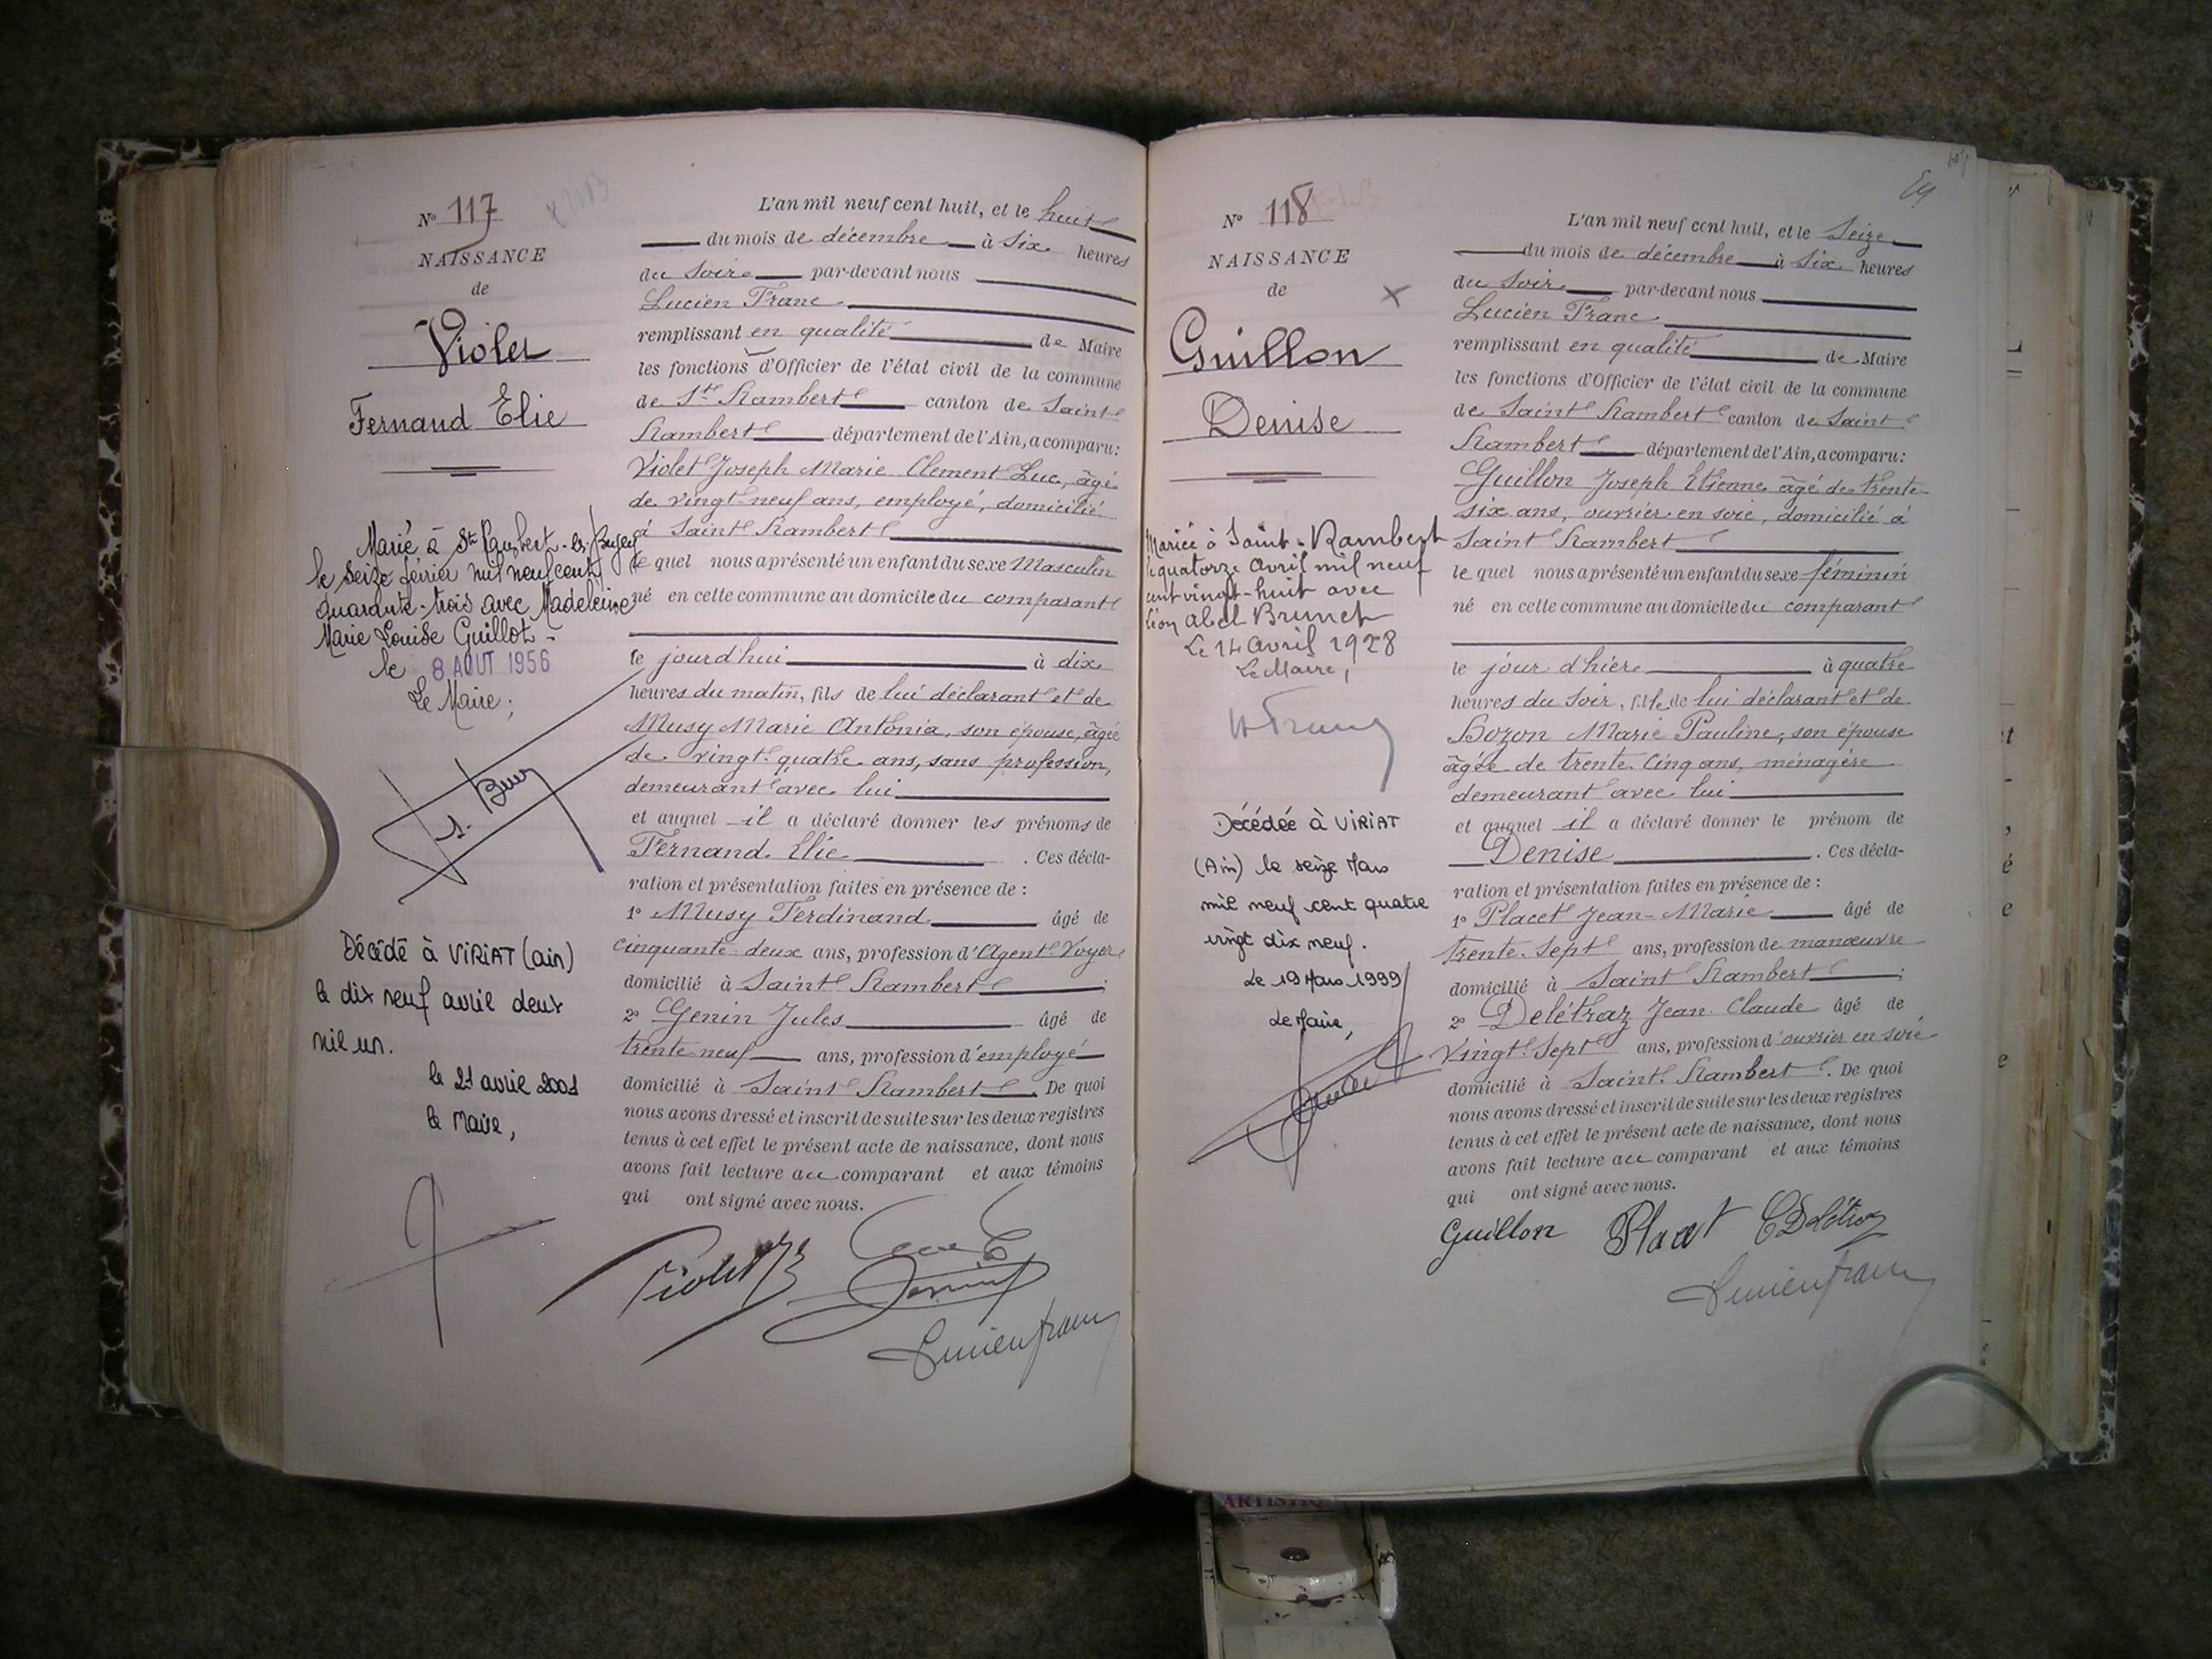 N° 117
NAISSANCE
de
Violet
Fernand Elie
Marié à St Rambert-en-Bugey
le seize février mil neuf cent
quarante-trois avec Madeleine
Marie Louise Guillot -
le 8 AOUT 1956
Le Maire,
Décédé à VIRIAT (ain)
le dix neuf avril deux
mil un.
le 21 avril 2001
le Maire,
L'an mil neuf cent huit, et le huit
du mois de décembre à six heures
du soir par-devant nous
Lucien Franc
remplissant en qualité de Maire
les fonctions d'Officier de l'état civil de la commune
de St Rambert canton de Saint
Rambert département de l'Ain, a comparu:
Violet Joseph Marie Clement Luc, âgé
de vingt-neuf ans, employé, domicilié
à Saint Rambert
le quel nous a présenté un enfant du sexe Masculin
né en cette commune au domicile du comparant
le jourd'hui à dix
heures du matin, fils de lui déclarant et de
Musy Marie Antonia, son épouse, âgée
de vingt-quatre ans, sans profession,
demeurant avec lui
et auquel il a déclaré donner les prénoms de
Fernand Elie . Ces décla-
ration et présentation faites en présence de :
1° Musy Ferdinand âgé de
cinquante-deux ans, profession d'Agent-Voyer
domicilié à Saint Rambert ;
2° Genin Jules âgé de
trente-neuf ans, profession d'employé
domicilié à Saint Rambert. De quoi
nous avons dressé et inscrit de suite sur les deux registres
tenus à cet effet le présent acte de naissance, dont nous
avons fait lecture au comparant et aux témoins
qui ont signé avec nous.
Violet
Genin
Lucien franc
N° 118
NAISSANCE
de
Guillon
Denise
Mariée à Saint-Rambert
le quatorze Avril mil neuf
cent vingt-huit avec
Léon Abel Brunet
Le 14 Avril 1928
Le Maire,
Décédée à VIRIAT
(Ain) le seize Mars
mil neuf cent quatre
vingt dix neuf.
Le 19 Mars 1999
Le Maire,
L'an mil neuf cent huit, et le Seize
du mois de décembre à six heures
du soir par-devant nous
Lucien Franc
remplissant en qualité de Maire
les fonctions d'Officier de l'état civil de la commune
de Saint Rambert canton de Saint
Rambert département de l'Ain, a comparu:
Guillon Joseph Etienne âgé de trente
six ans, ouvrier en soie, domicilié à
Saint Rambert
le quel nous a présenté un enfant du sexe féminin
né en cette commune au domicile du comparant
le jour d'hier à quatre
heures du soir, fille de lui déclarant et de
Bozon Marie Pauline, son épouse
âgée de trente-cinq ans, ménagère
demeurant avec lui
et auquel il a déclaré donner le prénom de
Denise . Ces décla-
ration et présentation faites en présence de :
1° Placet Jean-Marie âgé de
trente-sept ans, profession de manœuvre
domicilié à Saint Rambert ;
2° Delétraz Jean-Claude âgé de
vingt-sept ans, profession d'ouvrier en soie
domicilié à Saint-Rambert. De quoi
nous avons dressé et inscrit de suite sur les deux registres
tenus à cet effet le présent acte de naissance, dont nous
avons fait lecture au comparant et aux témoins
qui ont signé avec nous.
Guillon Placet
Lucien franc